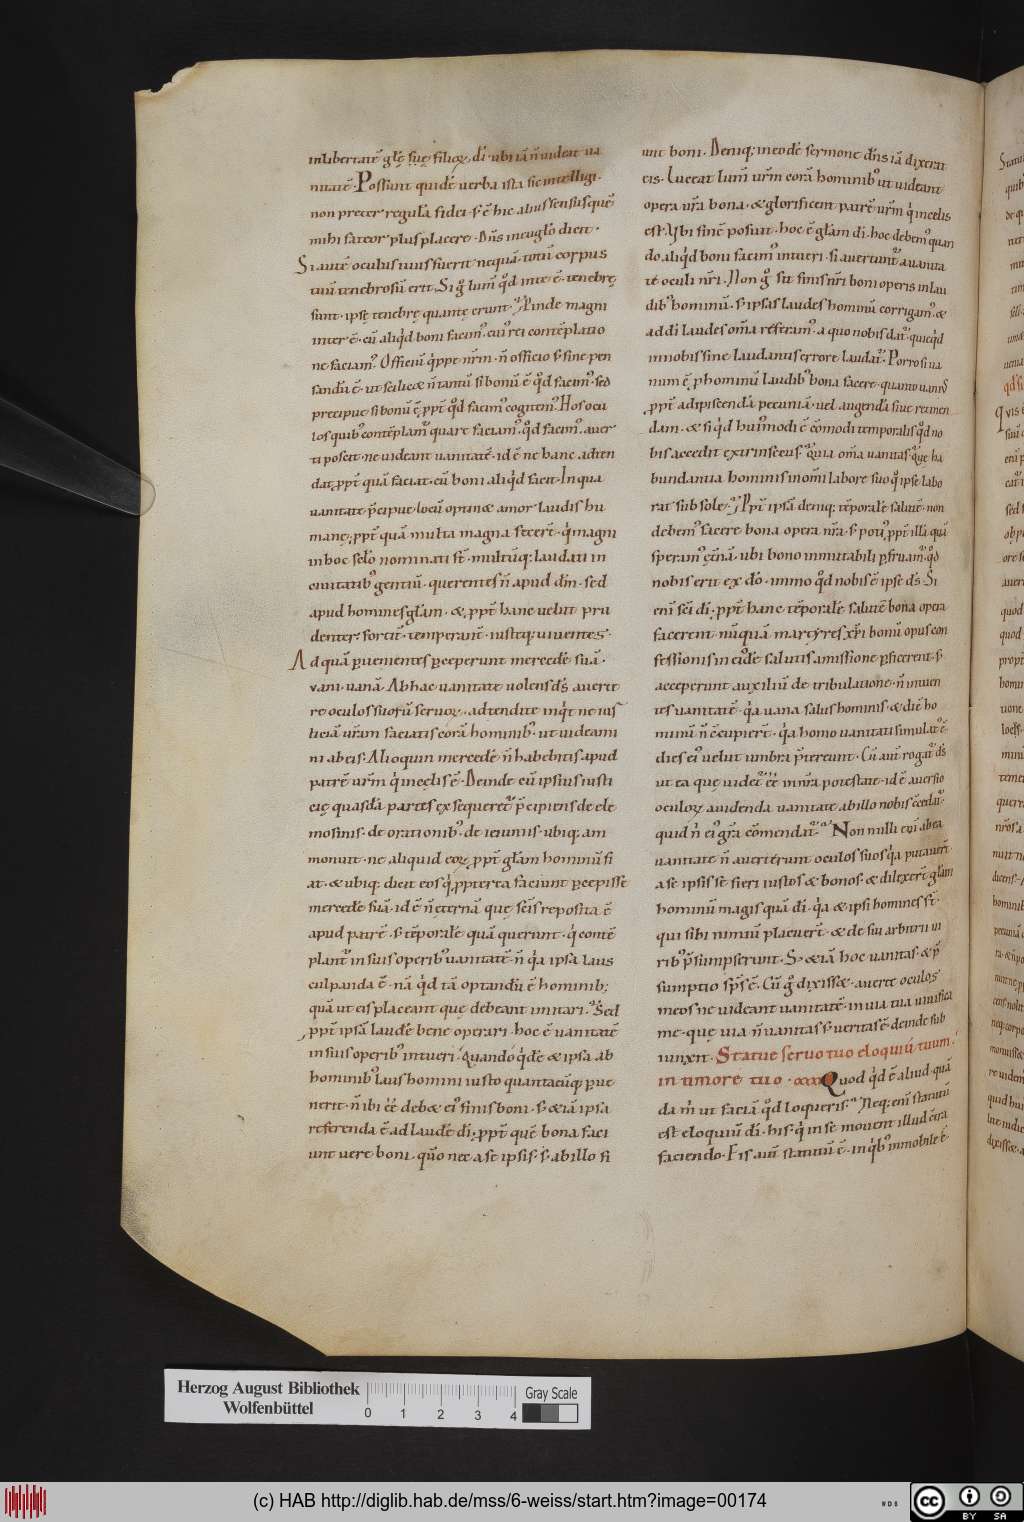 inlibertatē glę suę filioꝝ. di. ubi iā ñ uideat ua
nitatē. Possunt quidē uerba ista sic intelligi.
non preter regulā fidei. s; ē hic alius sensus quē
mihi fateor plus placere. dñs in euglo dicit.
Si autē oculus tuus fuerit nequā. totū corpus
tuū tenebrosū erit. Si g̊ lum̄ qd̄ in te ē. tenebrę
sunt. ipsę tenebrę quantę erunt. Proinde magni
interē. cū aliq̇d boni facim᷒. cui᷒ rei contēplatio
ne faciam᷒. Officiū q̇ppe nr̄m. ñ officio s; fine pen
sandū ē. ut scilicæ ñ tantū si bonū ē qd̄ facim᷒. sed
precipue si bonū ē ppt̄ qd̄ facim᷒ cogitem᷒. Hos ocu
los quib᷒ contēplam᷒ quare faciam᷒. qd̄ facim᷒. auer
ti poscit. ne uideant uanitatē. id ē ne hanc adten
dat ppt̄ quā faciat. cū boni aliq̇d facit. In qua
uanitate p̄cipue locū optinæ amor laudis hu
manę. ppt̄ quā multa magna fecer̄t. q̇ magni
in hoc sclo nominati st̄. multūq; laudati in
ciuitatib᷒ gentiū. querentes ñ apud dm̄. sed
apud homines glam. &; ppt̄ hanc uelut pru
denter. fortit̄. temperant̄. iusteq; uiuentes.
Ad quā puenientes pceperunt mercedē suā.
vani. uanā. Ab hac uanitate uolens ds̄ auerte
re oculos suorū seruoꝝ. adtendite inq̇t ne ius
ticiā ur̄am faciatis corā hominib᷒. ut uideami
ni ab eis. Alioquin mercedē ñ habebitis apud
patrē ur̄m q̇ in celis ē. Deinde cū ipsius iusti
cię quasdā partes exsequeret᷒ p̄cipiens de ele
mosinis. de orationib᷒. de ieiuniis. ubiq; am
monuit. ne aliquid eoꝝ ppt̄ glam hominū fi
at. & ubiq; dicit eos q̇ ppterea faciunt pcepisse
mercedē suā. id ē ñ eternā que scīs reposita ē
apud patrē. s; tēporalē quā querunt. q̇ contē
plant᷒ in suis operib᷒ uanitatē. ñ q̇a ipsa laus
culpanda ē. nā q̇d tā optandū ē hominib;
quā ut eis placeant que debeant imitari. Sed
ppt̄ ipsā laudē bene operari. hoc ē uanitatē
in suis operib᷒ intueri. Quando q̇dē & ipsa ab
hominib᷒ laus homini iusto quantacūq; pue
nerit. ñ ibi cē debæ ei᷒ finis boni. s; &iā ipsa
referenda ē ad laudē di. ppt̄ quē bona faci
unt uere boni. qm̄ nec a se ipsis. s; ab illo fi
unt boni. Deniq; in eodē sermone dñs iā dixerat
eis. Luceat lum̄ ur̄m corā hominib᷒ ut uideant
opera ur̄a bona. & glorificent patrē ur̄m q̇ in celis
est. Ubi finē posuit. hoc ē glam di. hoc debem᷒ quan
do aliq̇d boni facim᷒ intueri. si auertunt᷒ a uanita
te oculi nr̄i. Non g̊ sit finis nr̄i boni operis in lau
dib᷒ hominū. s; ipsas laudes hominū corrigam᷒. &
ad di laudes om̄a referam᷒. a quo nobis dat᷒. quicq̇d
in nobis sine laudantis errore laudat᷒. Porro si ua
num ē p hominū laudib᷒ bona facere. quanto uanius
ppt̄ adipiscendā pecuniā. uel augendā siue retinen
dam. & si q̇d hui᷒modi ē cōmodi temporalis qd̄ no
bis accedit extrinsecus. Quia om̄a uanitas. que ha
bundantia hominis in om̄i labore suo q̊ ipse labo
rat sub sole. Ppt̄ ipsā deniq; tēporalē salutē. non
debem᷒ facere bona opera nr̄a. s; poti᷒ ppt̄ illā quā
speram᷒ et̄nā. ubi bono inmutabili pfruam᷒. qd̄
nobis erit ex do. immo qd̄ nobis ē ipse ds̄. Si
eni scī di ppt̄ hanc tēporalē salutē bona opera
facerent. nūquā martyres xp̄i bonū opus con
fessionis in eidē salutis amissione pficerent. s;
acceperunt auxiliū de tribulatione. ñ intuen
tes uanitatē. q̇a uana salus hominis. & diē ho
minū ñ cōcupier̄t. q̇a homo uanitati similat᷒ ē.
dies ei᷒ uelut umbra p̄tereunt. Cū aut̄ rogat᷒ ds̄
ut ea que uidet᷒ ēē in nr̄a potestate. id ē auersio
oculoꝝ a uidenda uanitate ab illo nobis ccedat᷒.
quid ñ ei᷒ gr̄a cōmendat᷒. Non nulli eni ab ea
uanitate ñ auerterunt oculos suos q̇a putauer̄t
a se ipsis se fieri iustos & bonos. & dilexer̄t glam
hominū magis quā di. q̇a & ipsi homines st̄.
qui sibi nimiū placuer̄t. & de sui arbitrii ui
rib᷒ p̄sumpserunt. S; &iā hoc uanitas. & p̄
sumptio sps̄ ē. Cū g̊ dixisse. auerte oculos
meos ne uideant uanitatē. in uia tua uiuifica
me. que uia ñ uanitas s; ueritas ē. deinde sub
iunxit. Statue seruo tuo eloquiū tuum.
in timore tuo. Quod q̇d ē aliud. quā
da m̄ ut faciā qd̄ loqueris. Neq; eni statutū
est eloquiū di. his. q̇ in se mouent illud cōtra
faciendo. Fis aut̄ statutū ē. in q̇b᷒ inmobile ē.
Herzog August Bibliothek
Wolfenbüttel
0 1 2 3 4
Gray Scale
(c) HAB http://diglib.hab.de/mss/6-weiss/start.htm?image=00174
WDB
cc BY SA